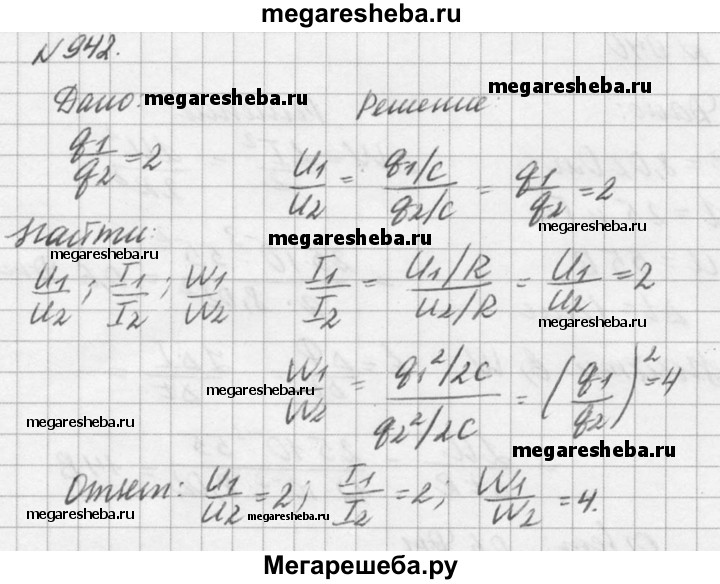 megaresheba.ru
N 942.
Дано: megaresheba.ru Решение megaresheba.ru
q1/q2 = 2
U1/U2 = (q1/c)/(q2/c) = q1/q2 = 2
Найти: megaresheba.ru megaresheba.ru
U1/U2; I1/I2; W1/W2
I1/I2 = (U1/R)/(U2/R) = U1/U2 = 2
megaresheba.ru megaresheba.ru
W1/W2 = (q1²/2C)/(q2²/2C) = (q1/q2)² = 4
megaresheba.ru
megaresheba.ru megaresheba.ru
Ответ: U1/U2 = 2; I1/I2 = 2; W1/W2 = 4.
megaresheba.ru megaresheba.ru megaresheba.ru
Мегарешеба.ру